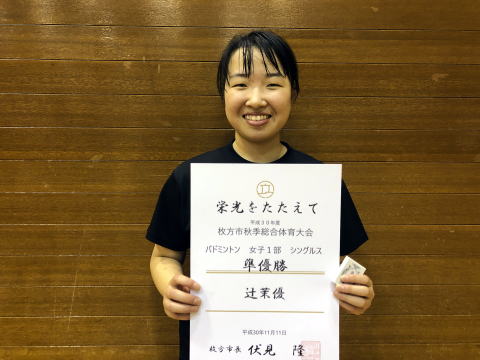 栄光をたたえて
平成30年度
枚方市秋季総合体育大会
バドミントン 女子1部 シングルス
準優勝
辻茉優
平成30年11月11日
枚方市長 伏見 隆